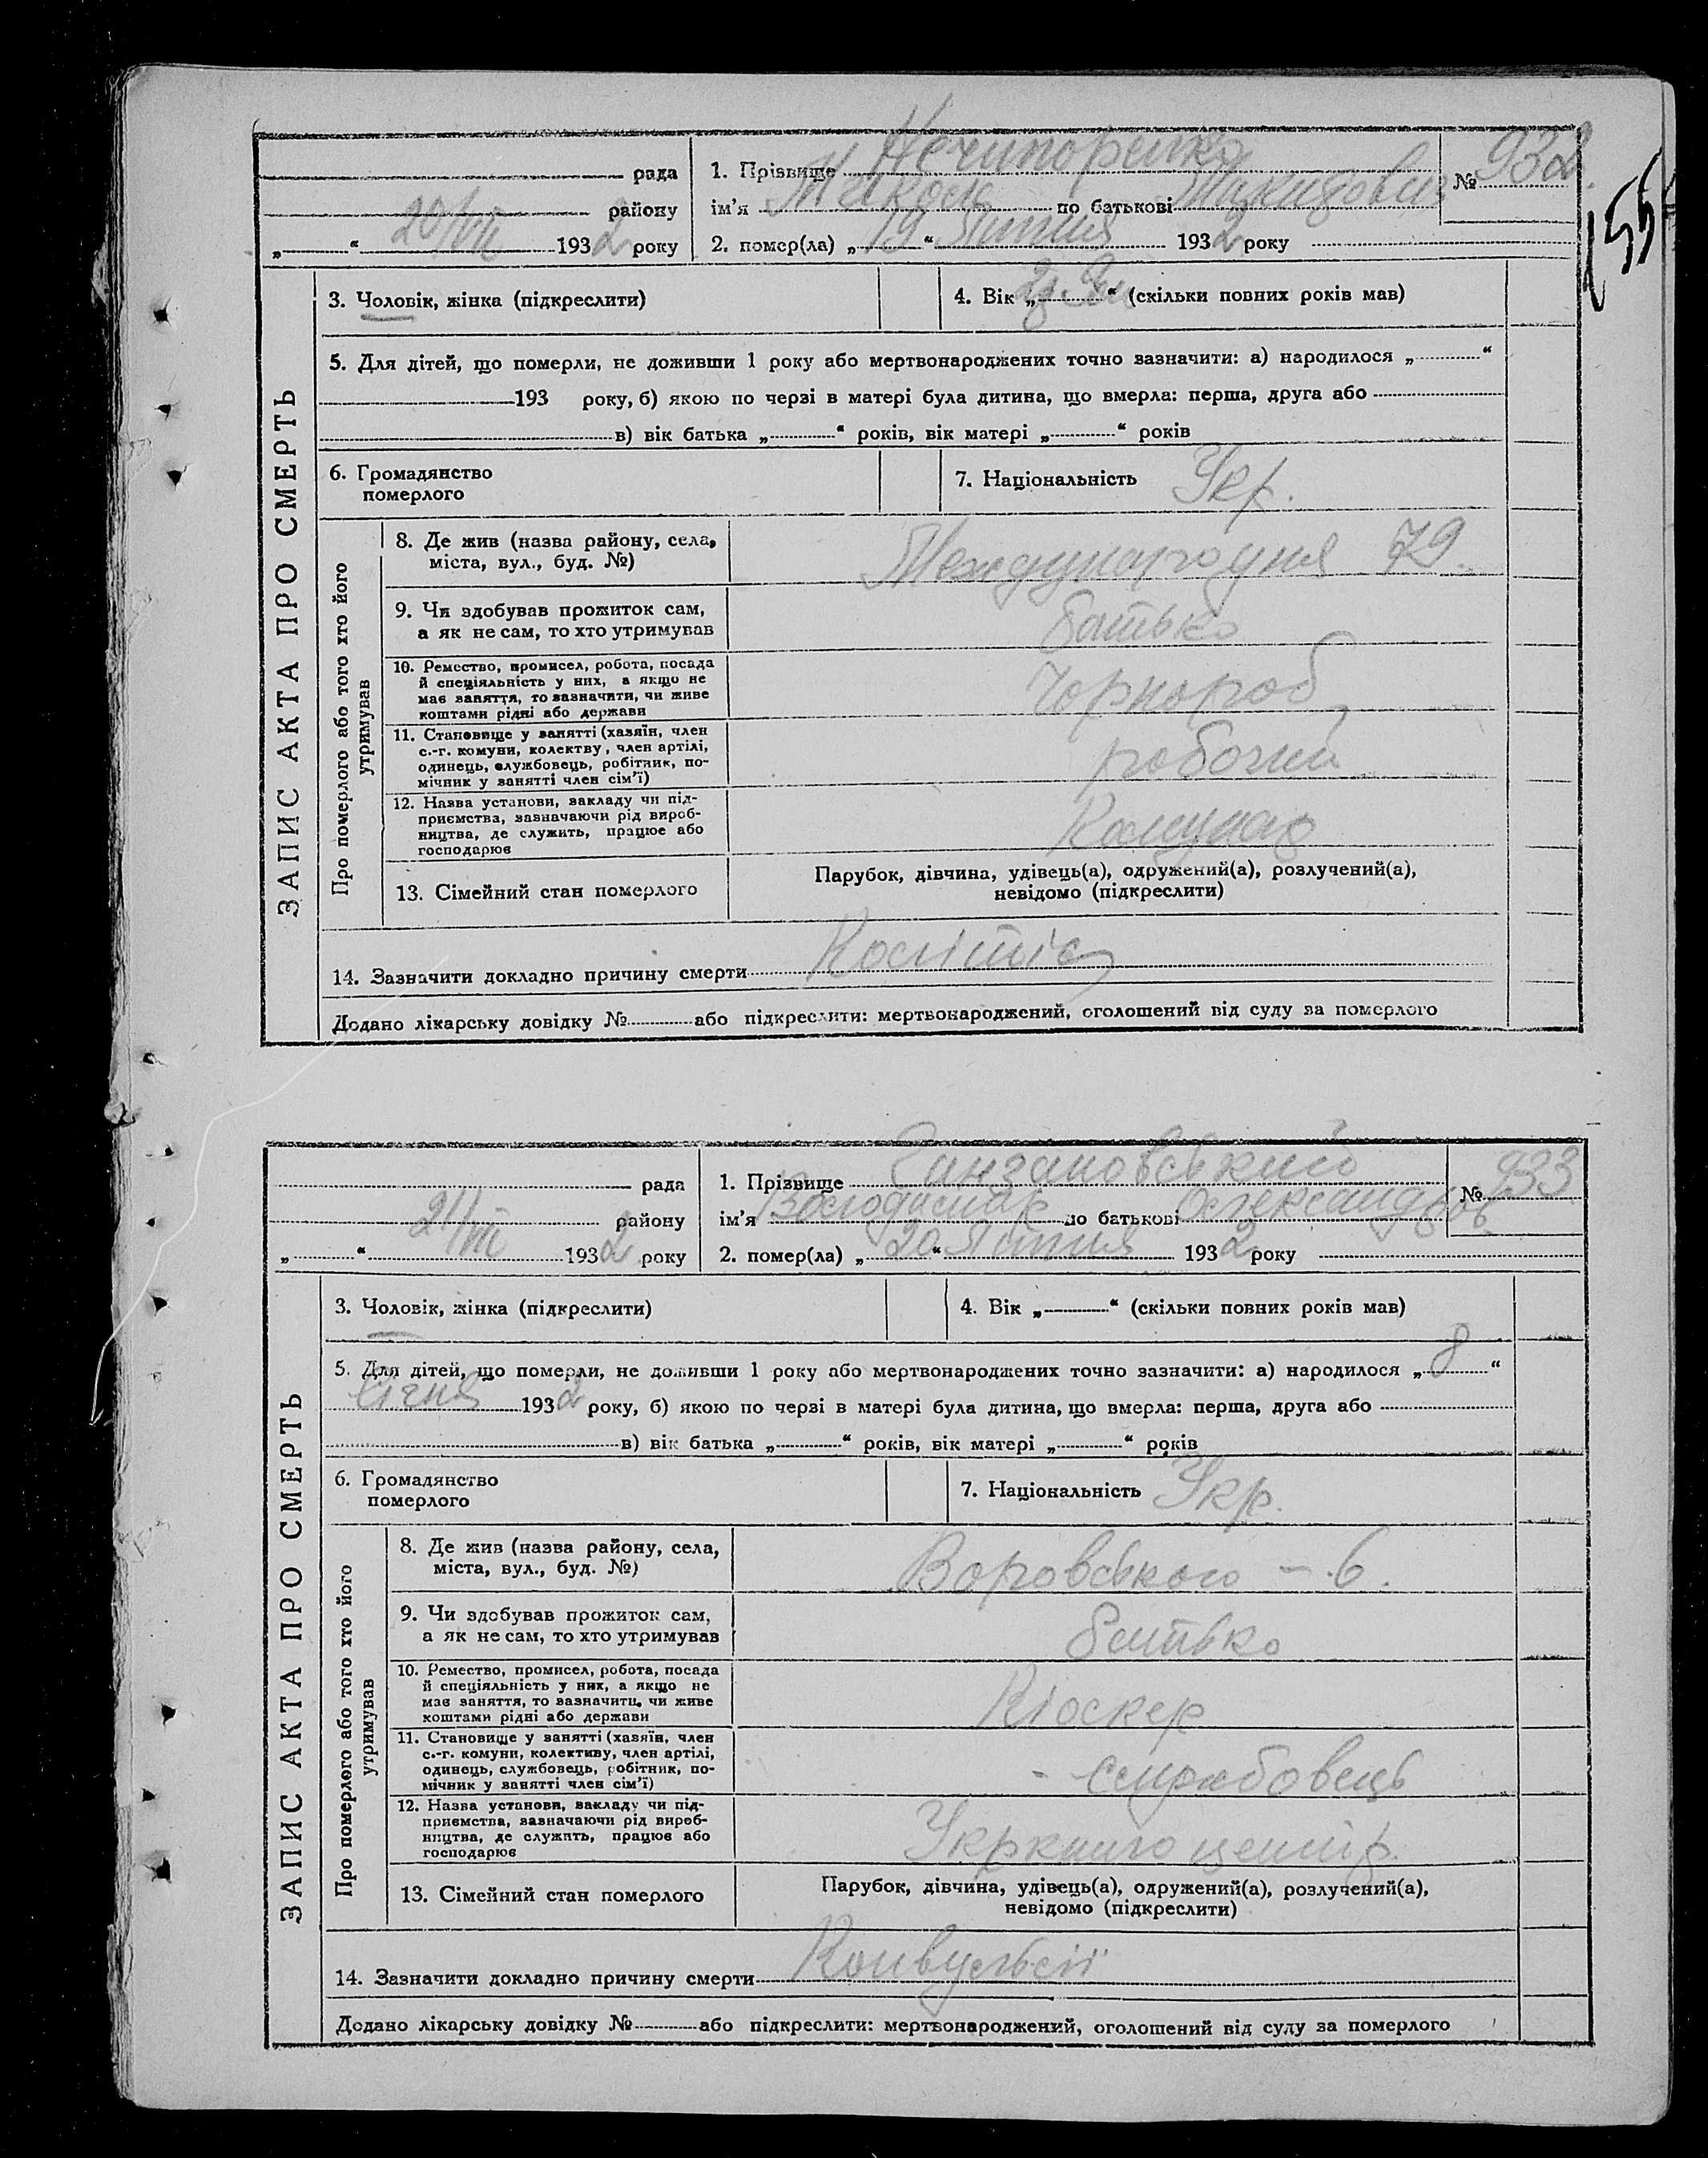 155
рада
1. Прізвище Нечипоренко
№ 932
району
ім'я Микола по батькові Микитович
„ “ 20/VII 1932 року
2. помер(ла) „ 19 “ Липня 1932 року
ЗАПИС АКТА ПРО СМЕРТЬ
3. Чоловік, жінка (підкреслити)
4. Вік „ “ (скільки повних років мав)
5. Для дітей, що померли, не доживши 1 року або мертвонароджених точно зазначити: а) народилося „ “
193 року, б) якою по черзі в матері була дитина, що вмерла: перша, друга або
в) вік батька „ “ років, вік матері „ “ років
6. Громадянство
померлого
7. Національність Укр.
Про померлого або того хто його
утримував
8. Де жив (назва району, села,
міста, вул., буд. №)
Международня 79.
9. Чи здобував прожиток сам,
а як не сам, то хто утримував
батько
10. Ремество, промисел, робота, посада
й спеціяльність у них, а якщо не
має заняття, то зазначити, чи живе
коштами рідні або держави
Чорнороб
11. Становище у занятті (хазяїн, член
с.-г. комуни, колектву, член артілі,
одинець, службовець, робітник, по-
мічник у занятті член сім'ї)
робочий
12. Назва установи, закладу чи під-
приємства, зазначаючи рід вироб-
ництва, де служить, працює або
господарює
Комунар
13. Сімейний стан померлого
Парубок, дівчина, удівець(а), одружений(а), розлучений(а),
невідомо (підкреслити)
14. Зазначити докладно причину смерти Колітіс
Додано лікарську довідку № або підкреслити: мертвонароджений, оголошений від суду за померлого
рада
1. Прізвище
№ 933
району
ім'я Володимир по батькові Олександров
„ “ 21/VII 1932 року
2. помер(ла) „ 20 “ Липня 1932 року
ЗАПИС АКТА ПРО СМЕРТЬ
3. Чоловік, жінка (підкреслити)
4. Вік „ “ (скільки повних років мав)
5. Для дітей, що померли, не доживши 1 року або мертвонароджених точно зазначити: а) народилося „ 8 “
Січня 1932 року, б) якою по черзі в матері була дитина, що вмерла: перша, друга або
в) вік батька „ “ років, вік матері „ “ років
6. Громадянство
померлого
7. Національність Укр.
Про померлого або того хто його
утримував
8. Де жив (назва району, села,
міста, вул., буд. №)
Воровського – 6.
9. Чи здобував прожиток сам,
а як не сам, то хто утримував
батько
10. Ремество, промисел, робота, посада
й спеціяльність у них, а якщо не
має заняття, то зазначити, чи живе
коштами рідні або держави
Кіоскер
11. Становище у занятті (хазяїн, член
с.-г. комуни, колективу, член артілі,
одинець, службовець, робітник, по-
мічник у занятті член сім'ї)
- службовець
12. Назва установи, закладу чи під-
приємства, зазначаючи рід вироб-
ництва, де служить, працює або
господарює
Укркнигоцентр.
13. Сімейний стан померлого
Парубок, дівчина, удівець(а), одружений(а), розлучений(а),
невідомо (підкреслити)
14. Зазначити докладно причину смерти Конвульсії
Додано лікарську довідку № або підкреслити: мертвонароджений, оголошений від суду за померлого